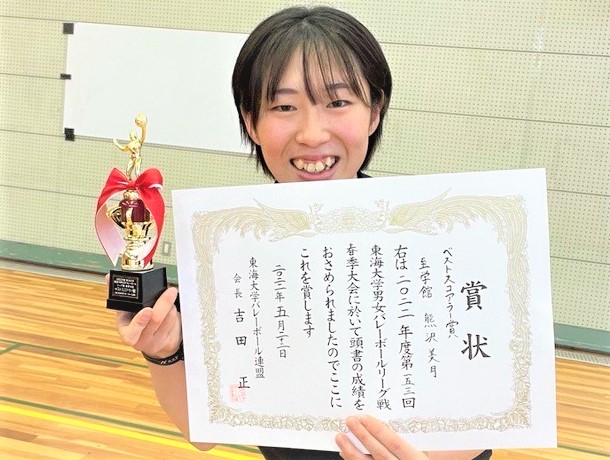 賞状
ベストスコアラー賞
至学館 熊沢美月
右は二〇二二年度第一五三回
東海大学男女バレーボールリーグ戦
春季大会に於いて頭書の成績を
おさめられましたのでここに
これを賞します
二〇二二年五月二十二日
東海大学バレーボール連盟
会長 吉田 正